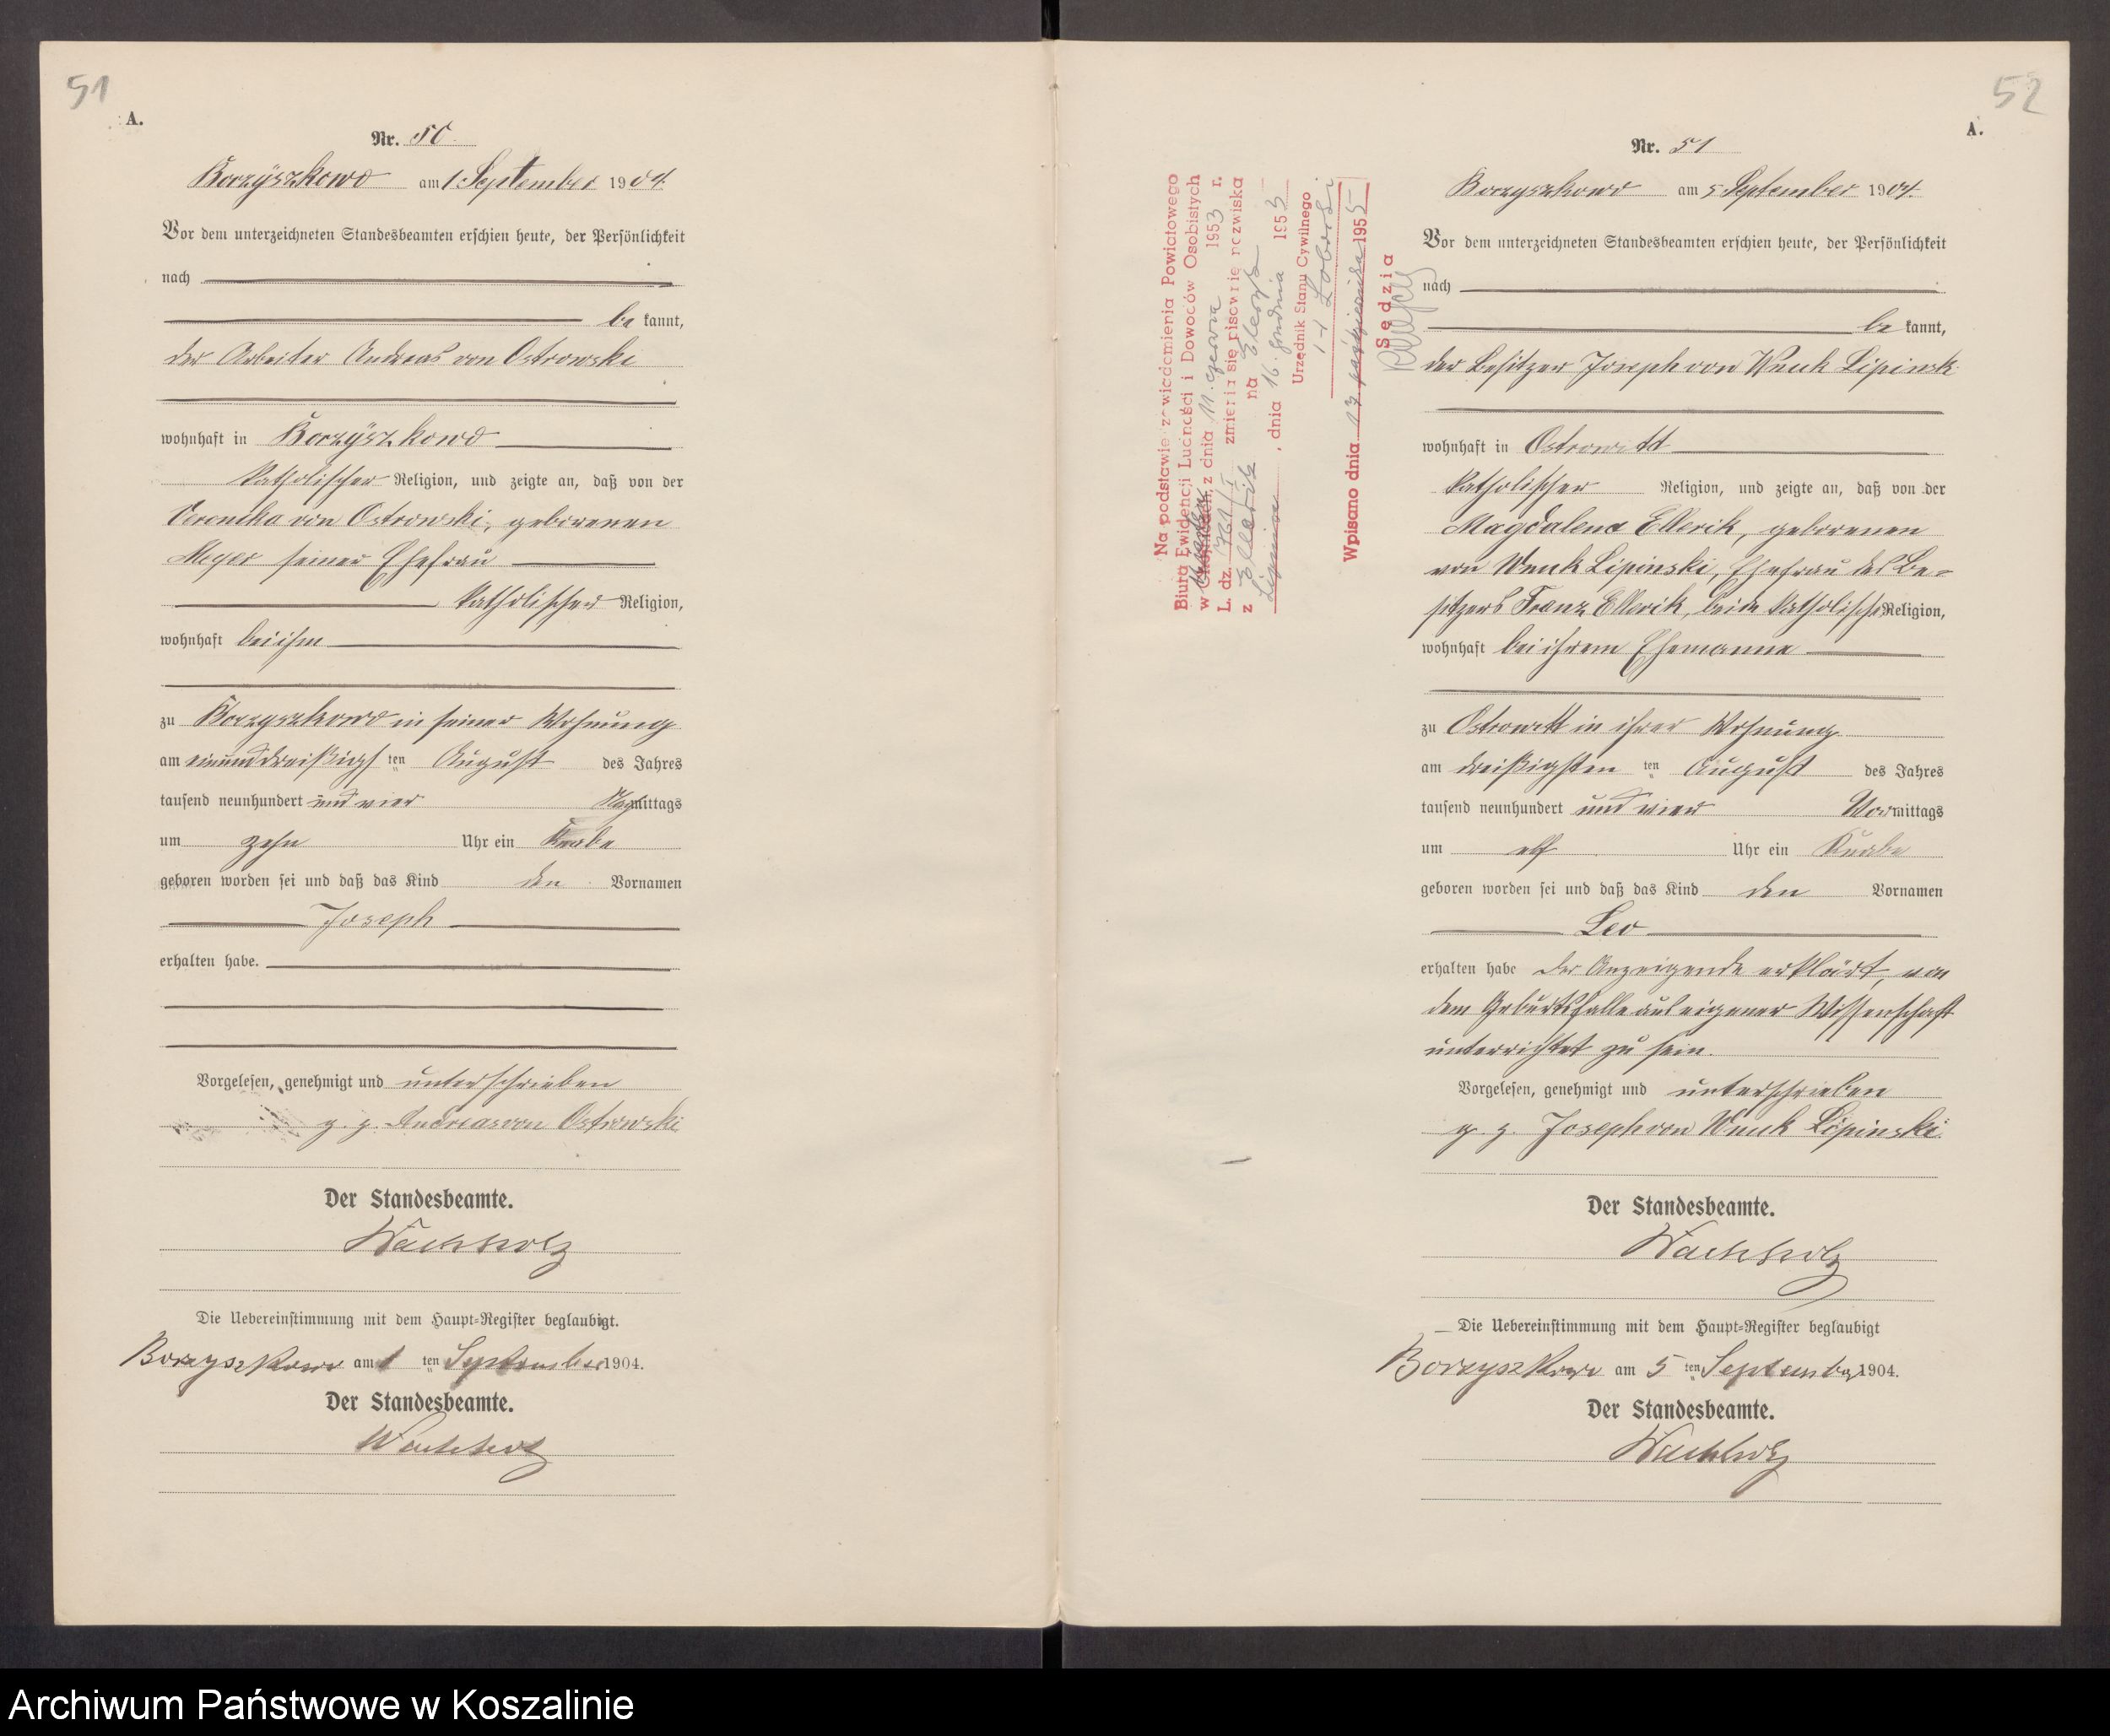 51
A.
Nr. 50
Borzyszkowo am 1 September 1904.
Vor dem unterzeichneten Standesbeamten erschien heute, der Persönlichkeit
nach
be kannt,
der Arbeiter Andreas von Ostrowski
wohnhaft in Borzyszkowo
katholischer Religion, und zeigte an, daß von der
Veronika von Ostrowski, geborenen
Meyer seiner Ehefrau
katholischer Religion,
wohnhaft bei ihm
zu Borzyszkowo in seiner Wohnung
am einunddreißigsten ten August des Jahres
tausend neunhundert und vier Nachmittags
um zehn Uhr ein Knabe
geboren worden sei und daß das Kind den Vornamen
Joseph
erhalten habe.
Vorgelesen, genehmigt und unterschrieben
g. g. Andreas von Ostrowski
Der Standesbeamte.
Wachholz
Die Uebereinstimmung mit dem Haupt=Register beglaubigt.
Borzyszkowo am 1 ten September 1904.
Der Standesbeamte.
Wachholz
52
A.
Nr. 51
Borzyszkowo am 5 September 1904.
Vor dem unterzeichneten Standesbeamten erschien heute, der Persönlichkeit
nach
be kannt,
der Besitzer Joseph von Wnuk Lipinski
wohnhaft in Ostrowitt
katholischer Religion, und zeigte an, daß von der
Magdalena Ellerik, geborenen
von Wnuk Lipinski, Ehefrau des Be=
sitzers Franz Ellerik, beide katholischer Religion,
wohnhaft bei ihrem Ehemanne
zu Ostrowitt in ihrer Wohnung
am dreißigsten ten August des Jahres
tausend neunhundert und vier Vormittags
um elf Uhr ein Knabe
geboren worden sei und daß das Kind den Vornamen
Leo
erhalten habe Der Anzeigende erklärt, von
dem Geburtsfalle aus eigener Wissenschaft
unterrichtet zu sein.
Vorgelesen, genehmigt und unterschrieben
g. g. Joseph von Wnuk Lipinski
Der Standesbeamte.
Wachholz
Die Uebereinstimmung mit dem Haupt=Register beglaubigt
Borzyszkowo am 5 ten September 1904.
Der Standesbeamte.
Wachholz
Na podstawie zawiadomienia Powiatowego
Biura Ewidencji Ludności i Dowodów Osobistych
w z dnia 11. czerwca 1953 r.
L. dz. zmienia się pisownię nazwiska
z Ellerik na Eleryk
Lipnica, dnia 16. grudnia 1953
Urzędnik Stanu Cywilnego
Wpisano dnia 17 października 1955
Sędzia
Archiwum Państwowe w Koszalinie